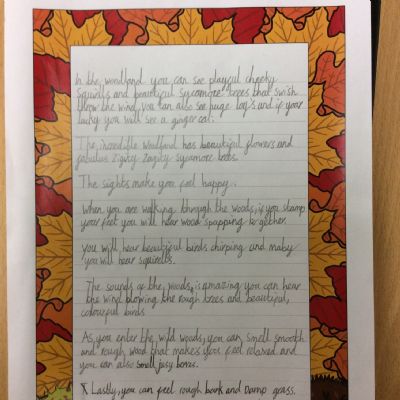 In the woodland you can see playful cheeky
squirlls and beautiful sycamore trees that swish
throw the wind, you can also see huge logs and if your
lucky you will see a ginger cat.
The incredible woodland has beautiful flowers and
fabulus zigity zagity sycamore trees.
The sights make you feel happy.
When you are walking through the woods, if you stamp
your feet you will hear wood snapping together.
you will hear beautiful birds chirping and maby
you will hear squirells.
The sounds of the woods, is amazing you can hear
the wind blowing the rough trees and beautiful,
colourful birds
As you enter the wild woods, you can smell smooth
and rough wood that makes you feel relaxed and
you can also smell juicy
Lastly, you can feel rough bark and damp grass.